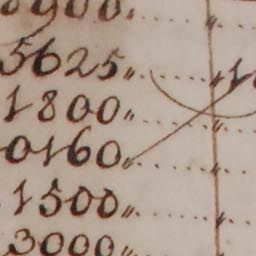 8900.
5625〃
1800〃
0160〃
1500〃
3000〃